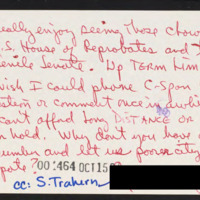 really enjoy seeing those Chow
.S. House of Reprobates and t
enile Senate. Up Term Lim
wish I could phone C-Span
estion or comment once in awhi
can't afford long DISTANCE OR
on hold. Why don't you have a
number and let us poorer city
pate?
001464 OCT 15
cc: S. Trahern